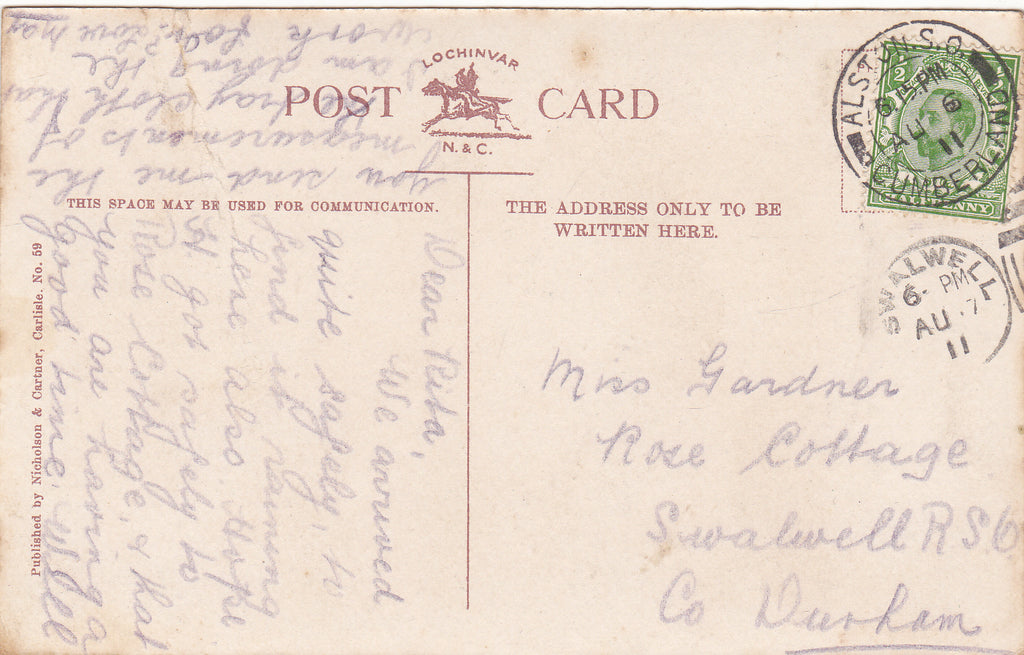 LOCHINVAR
POST CARD
N. & C.
THIS SPACE MAY BE USED FOR COMMUNICATION.
THE ADDRESS ONLY TO BE
WRITTEN HERE.
Published by Nicholson & Cartner, Carlisle. No. 59
ALSTON S.O.
CUMBERLAND
6 PM
AU 6
11
HALFPENNY
SWALWELL
6- PM
AU 7
11
Dear Rita,
We arrived
quite safely, to
find it raining
here also. Hope
H. got safely to
Rose Cottage, & that
you are having a
good time. Will
you send me the
measurements of
the tray cloth that
I am doing the
work for? Love May
Miss Gardner
Rose Cottage
Swalwell RSO
Co Durham